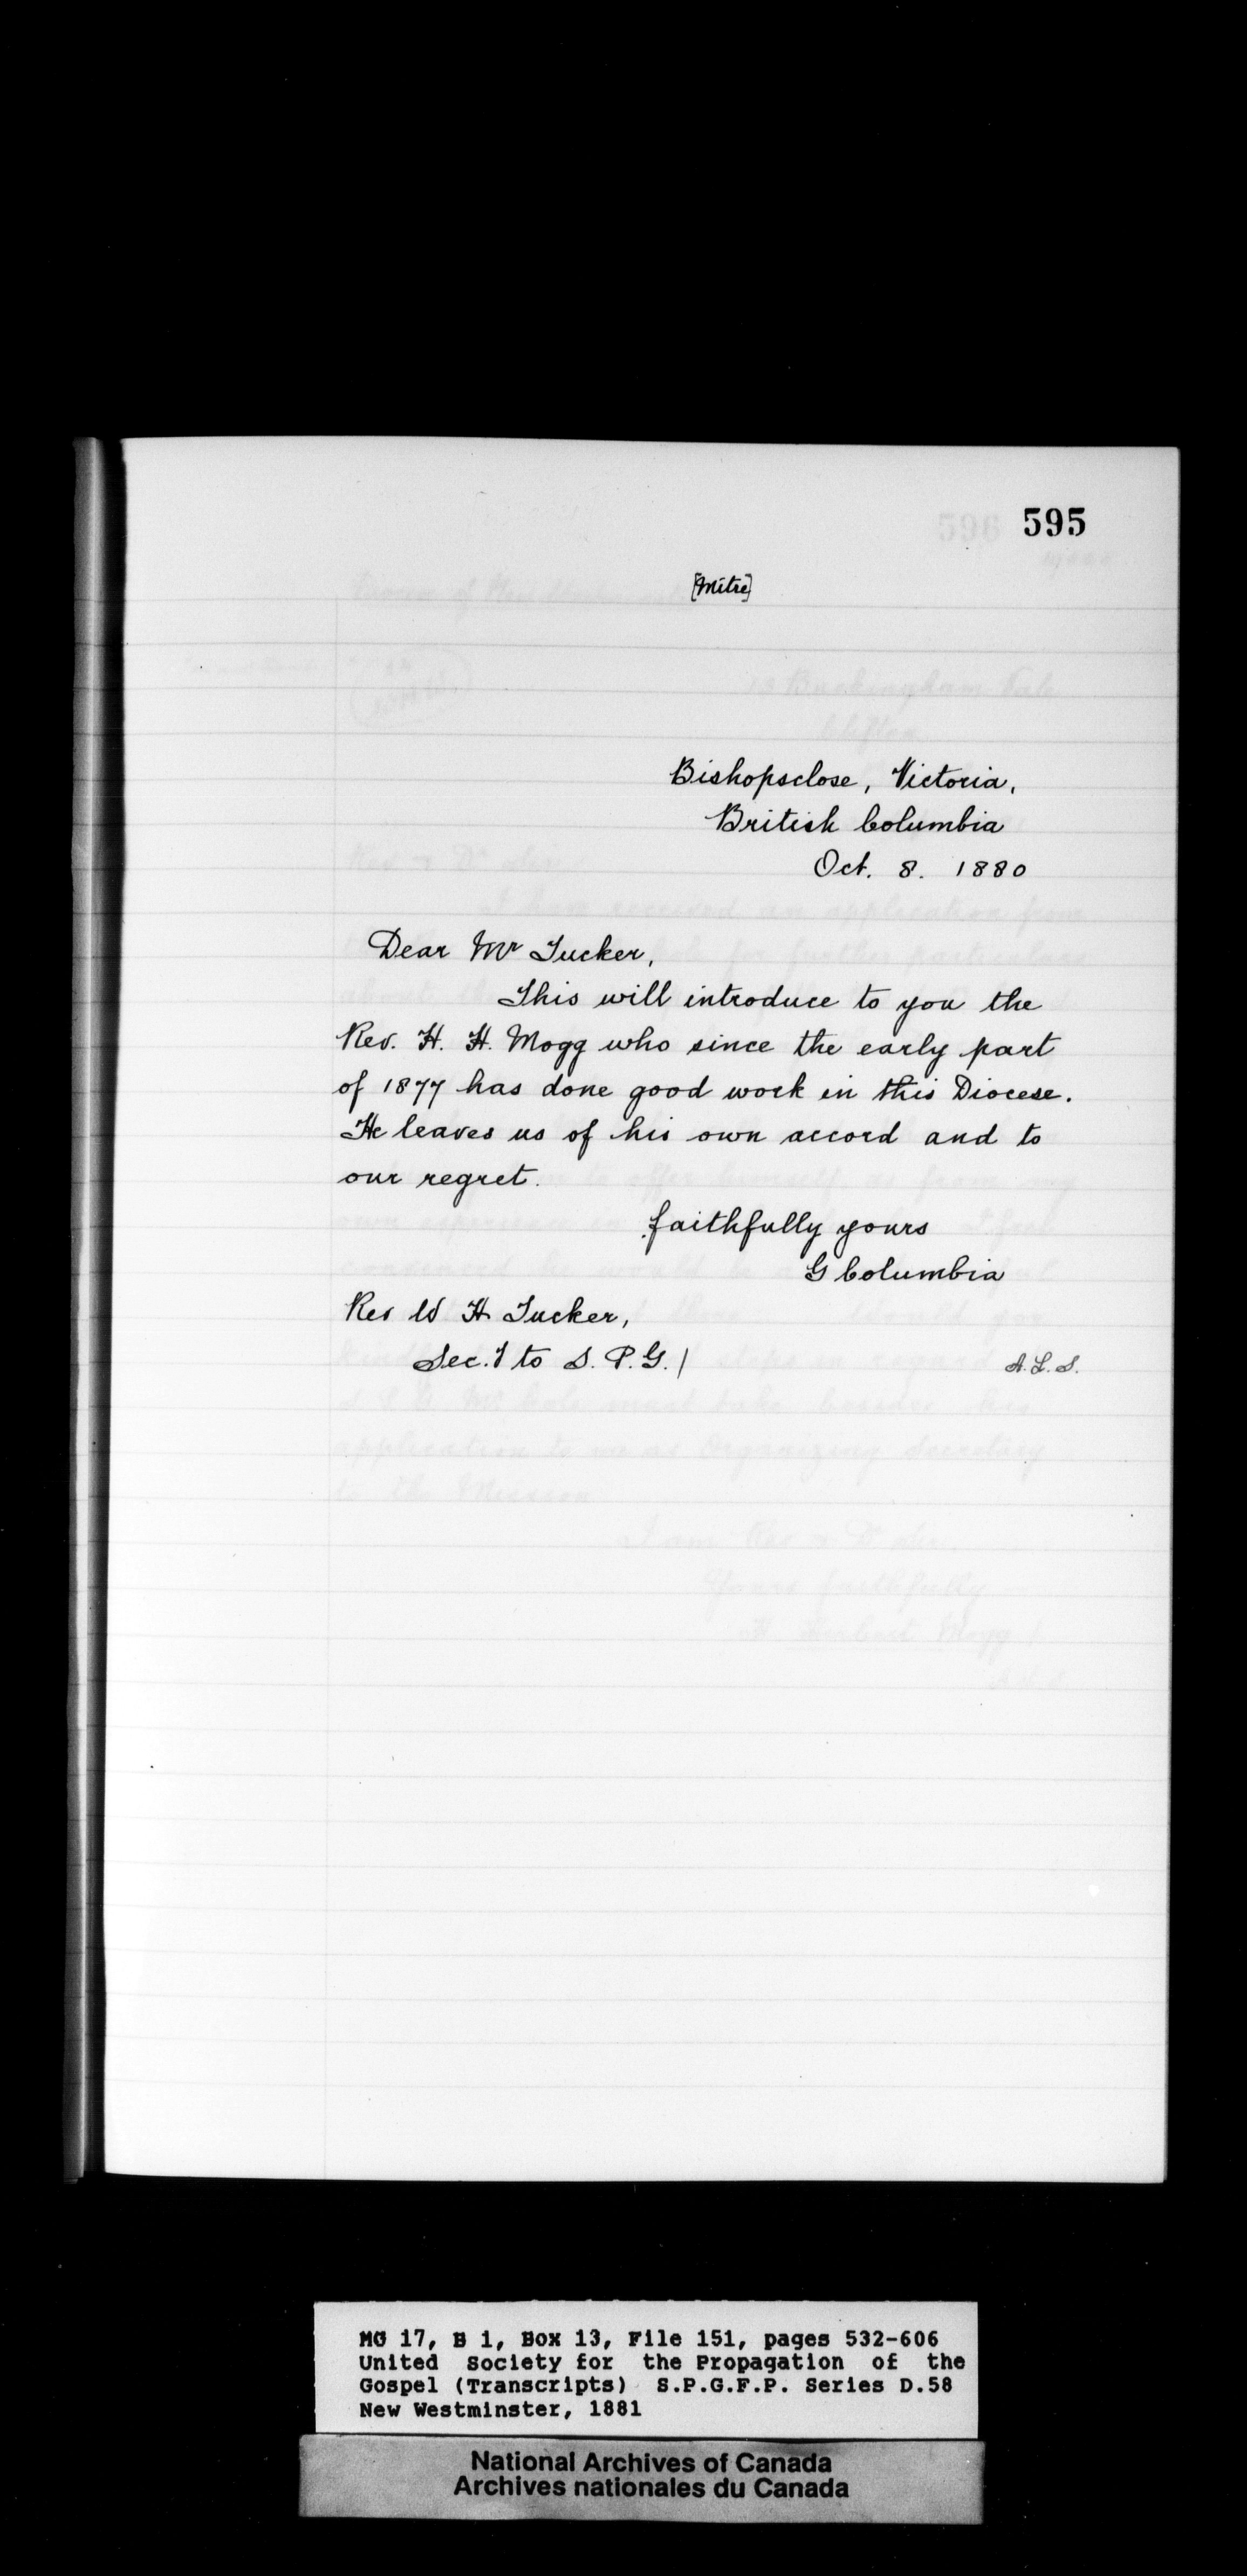 595
[Mitre]
Bishopsclose, Victoria,
British Columbia
Oct. 8. 1880
Dear Mr Tucker,
This will introduce to you the
Rev. H. H. Mogg who since the early part
of 1877 has done good work in this Diocese.
He leaves us of his own accord and to
our regret.
faithfully yours
G Columbia
Rev W H Tucker,
Sec.y to S. P. G. /
A. L. S.
MG 17, B 1, Box 13, File 151, pages 532-606
United Society for the Propagation of the
Gospel (Transcripts) S.P.G.F.P. Series D.58
New Westminster, 1881
National Archives of Canada
Archives nationales du Canada